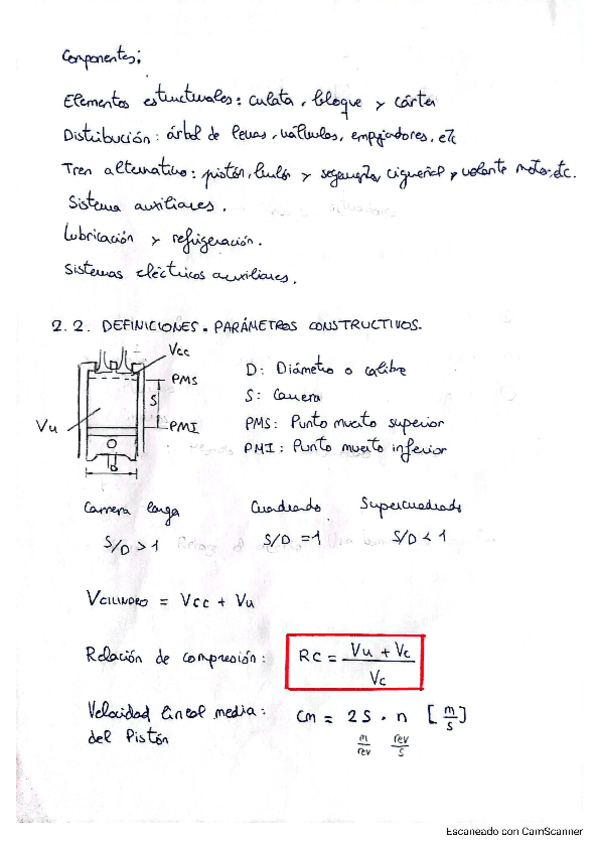 Componentes:
Elementos estructurales: culata, bloque y cárter
Distribución: árbol de levas, válvulas, empujadores, etc
Tren alternativo: pistón, bulón y segmentos, cigueñal y volante motor, etc.
Sistema auxiliares.
Lubricación y refrigeración.
Sistemas eléctricos auxiliares.
2.2. DEFINICIONES. PARÁMETROS CONSTRUCTIVOS.
Vcc
PMS
S
Vu
PMI
D
D: Diámetro o calibre
S: Carrera
PMS: Punto muerto superior
PMI: Punto muerto inferior
Carrera larga Cuadrado Supercuadrado
S/D > 1 S/D = 1 S/D < 1
VCILINDRO = Vcc + Vu
Relación de compresión: RC = Vu + Vc / Vc
Velocidad lineal media: Cm = 2S · n [m/s]
del Pistón m/rev rev/s
Escaneado con CamScanner